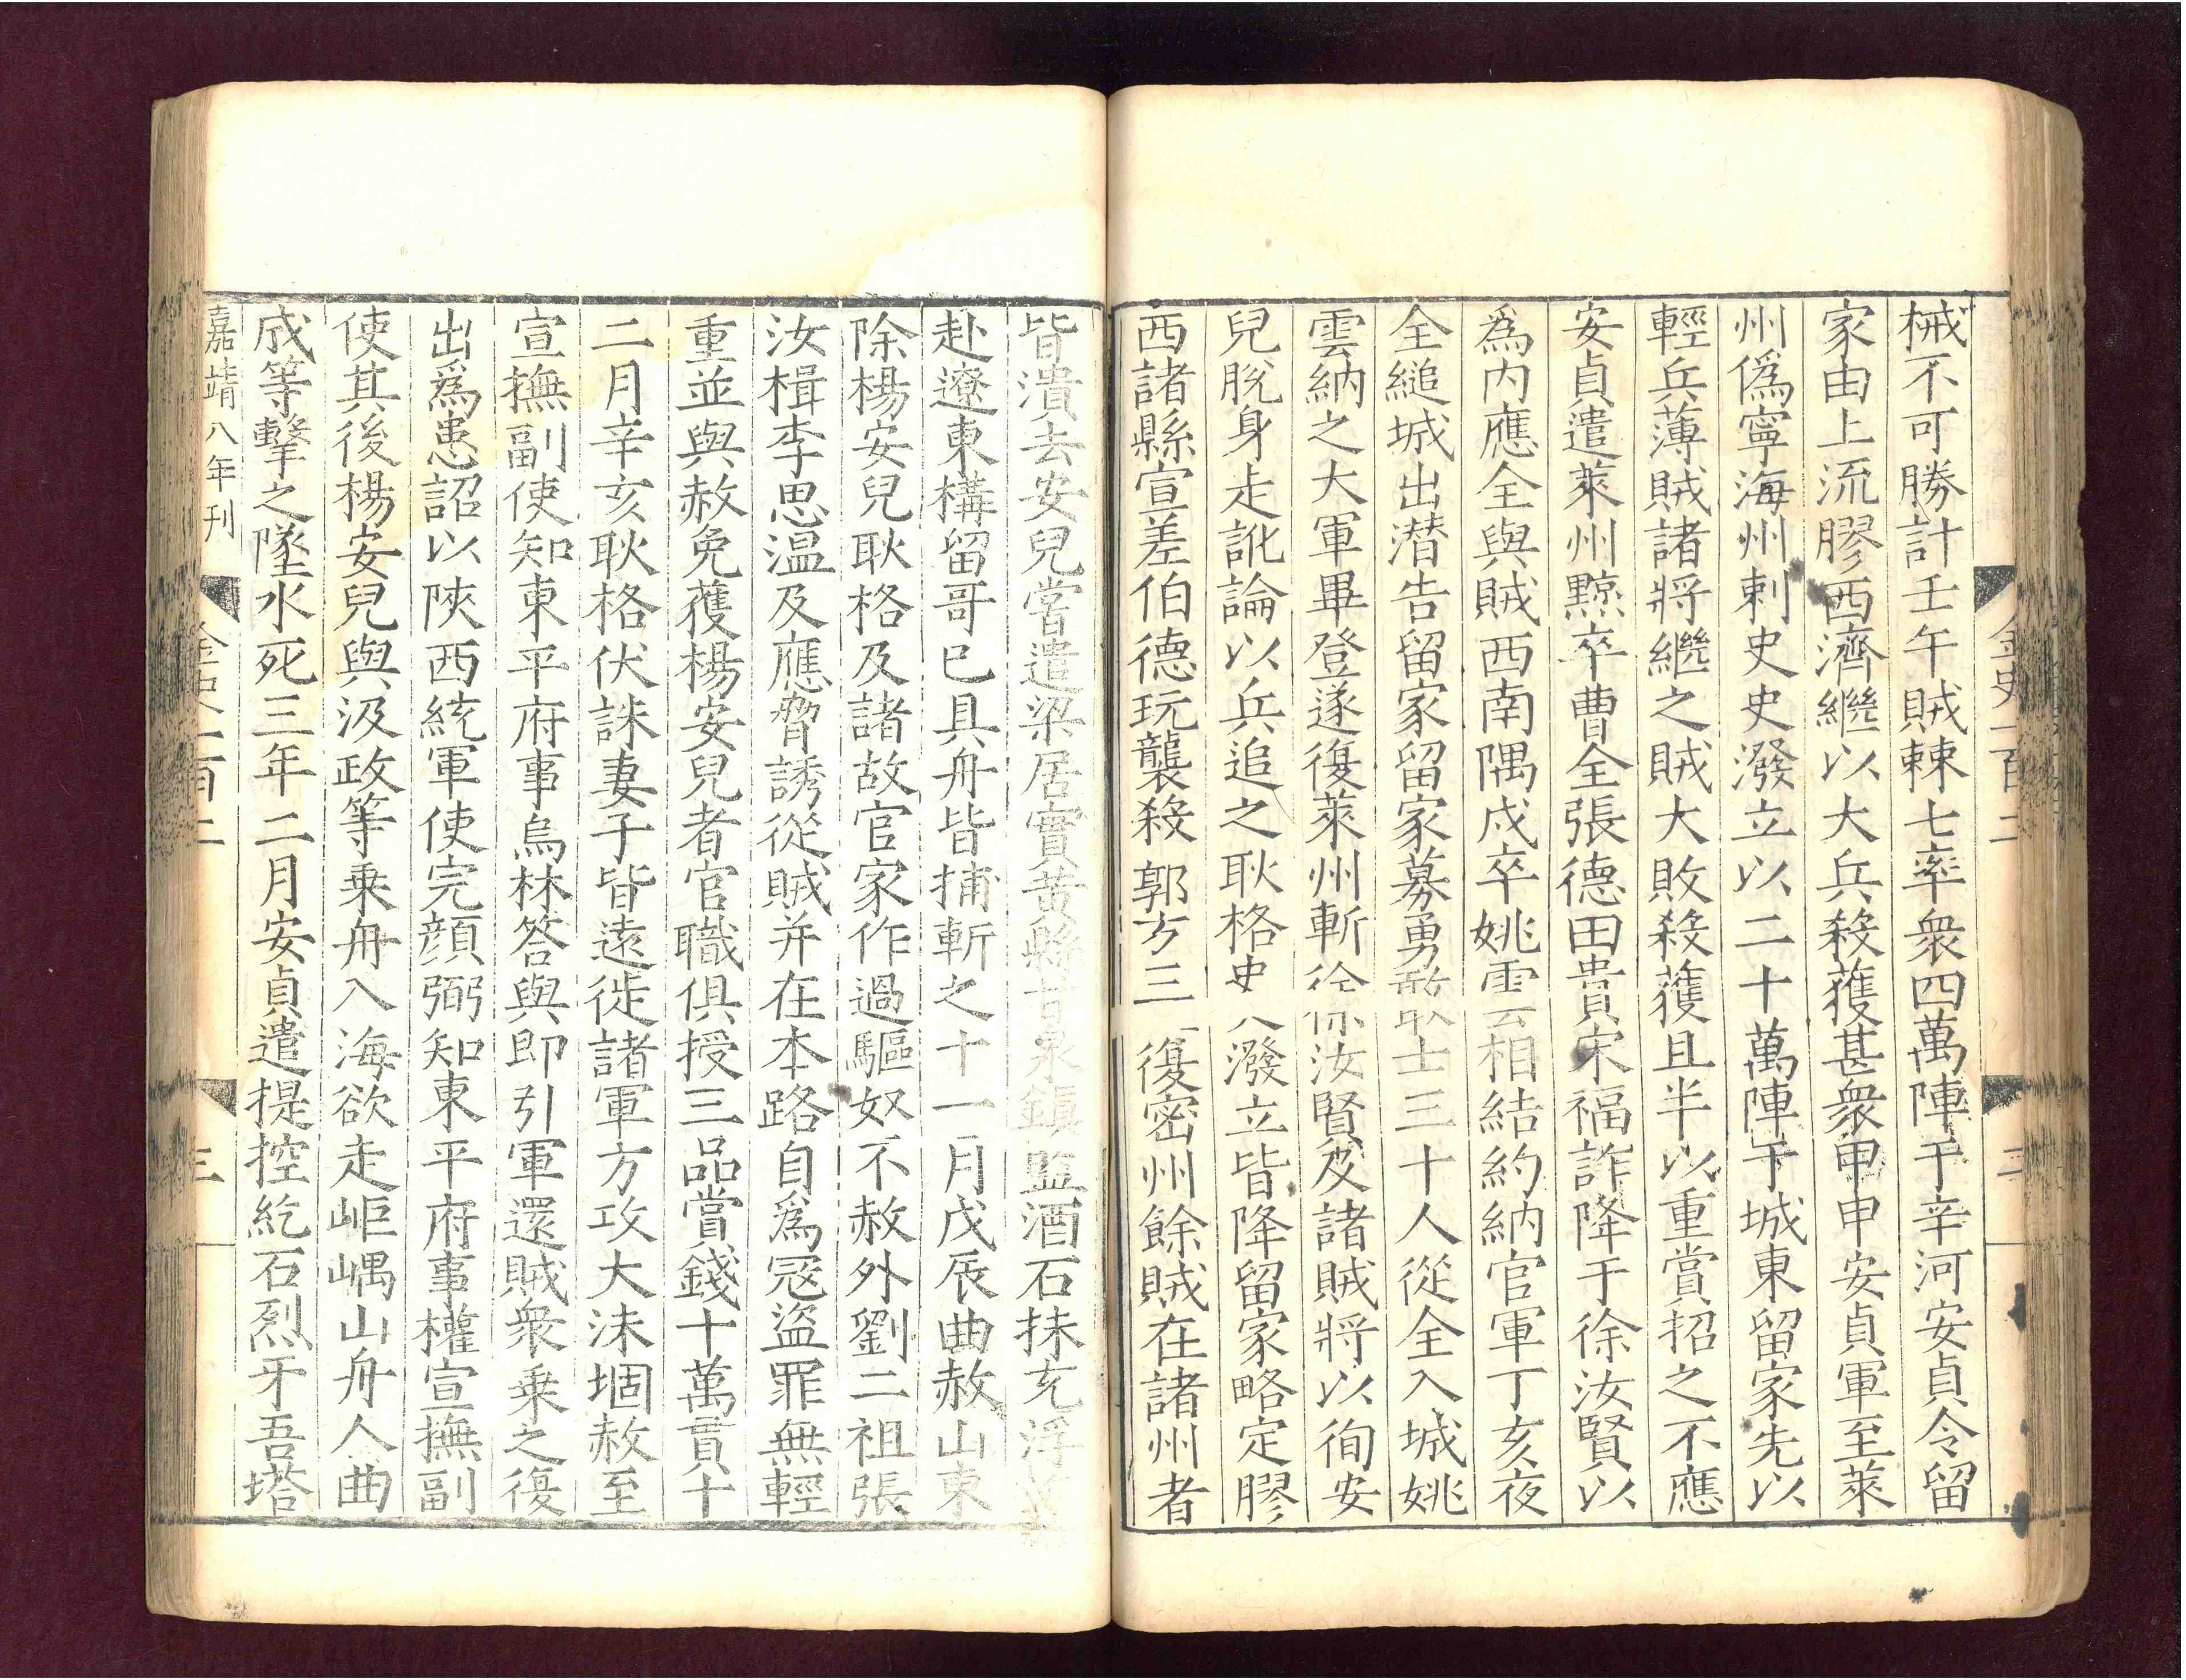 金史一百二
二
械不可勝計壬午賊棘七率衆四萬陣于辛河安貞令留
家由上流膠西濟繼以大兵殺獲甚衆甲申安貞軍至萊
州僞寧海州剌史史潑立以二十萬陣于城東留家先以
輕兵薄賊諸將繼之賊大敗殺獲且半以重賞招之不應
安貞遣萊州黥卒曹全張德田貴宋福詐降于徐汝賢以
爲內應全與賊西南隅戍卒姚雲相結約納官軍丁亥夜
全縋城出潛告留家留家募勇敢士三十人從全入城姚
雲納之大軍畢登遂復萊州斬徐汝賢及諸賊將以徇安
兒脫身走訛論以兵追之耿格史潑立皆降留家略定膠
西諸縣宣差伯德玩襲殺郭方三復密州餘賊在諸州者
皆潰去安兒嘗遣梁居實黃縣甘泉鎭監酒石抹充浮
赴遼東構留哥已具舟皆捕斬之十一月戊辰曲赦山東
除楊安兒耿格及諸故官家作過驅奴不赦外劉二祖張
汝楫李思溫及應脅誘從賊并在本路自爲冦盜罪無輕
重並與赦免獲楊安兒者官職俱授三品賞錢十萬貫十
二月辛亥耿格伏誅妻子皆遠徙諸軍方攻大沬堌赦至
宣撫副使知東平府事烏林答與即引軍還賊衆乗之復
出爲患詔以陝西統軍使完顏弼知東平府事權宣撫副
使其後楊安兒與汲政等乗舟入海欲走岠嵎山舟人曲
成等擊之墜水死三年二月安貞遣提控紇石烈牙吾塔
嘉靖八年刊
金史一百二
三